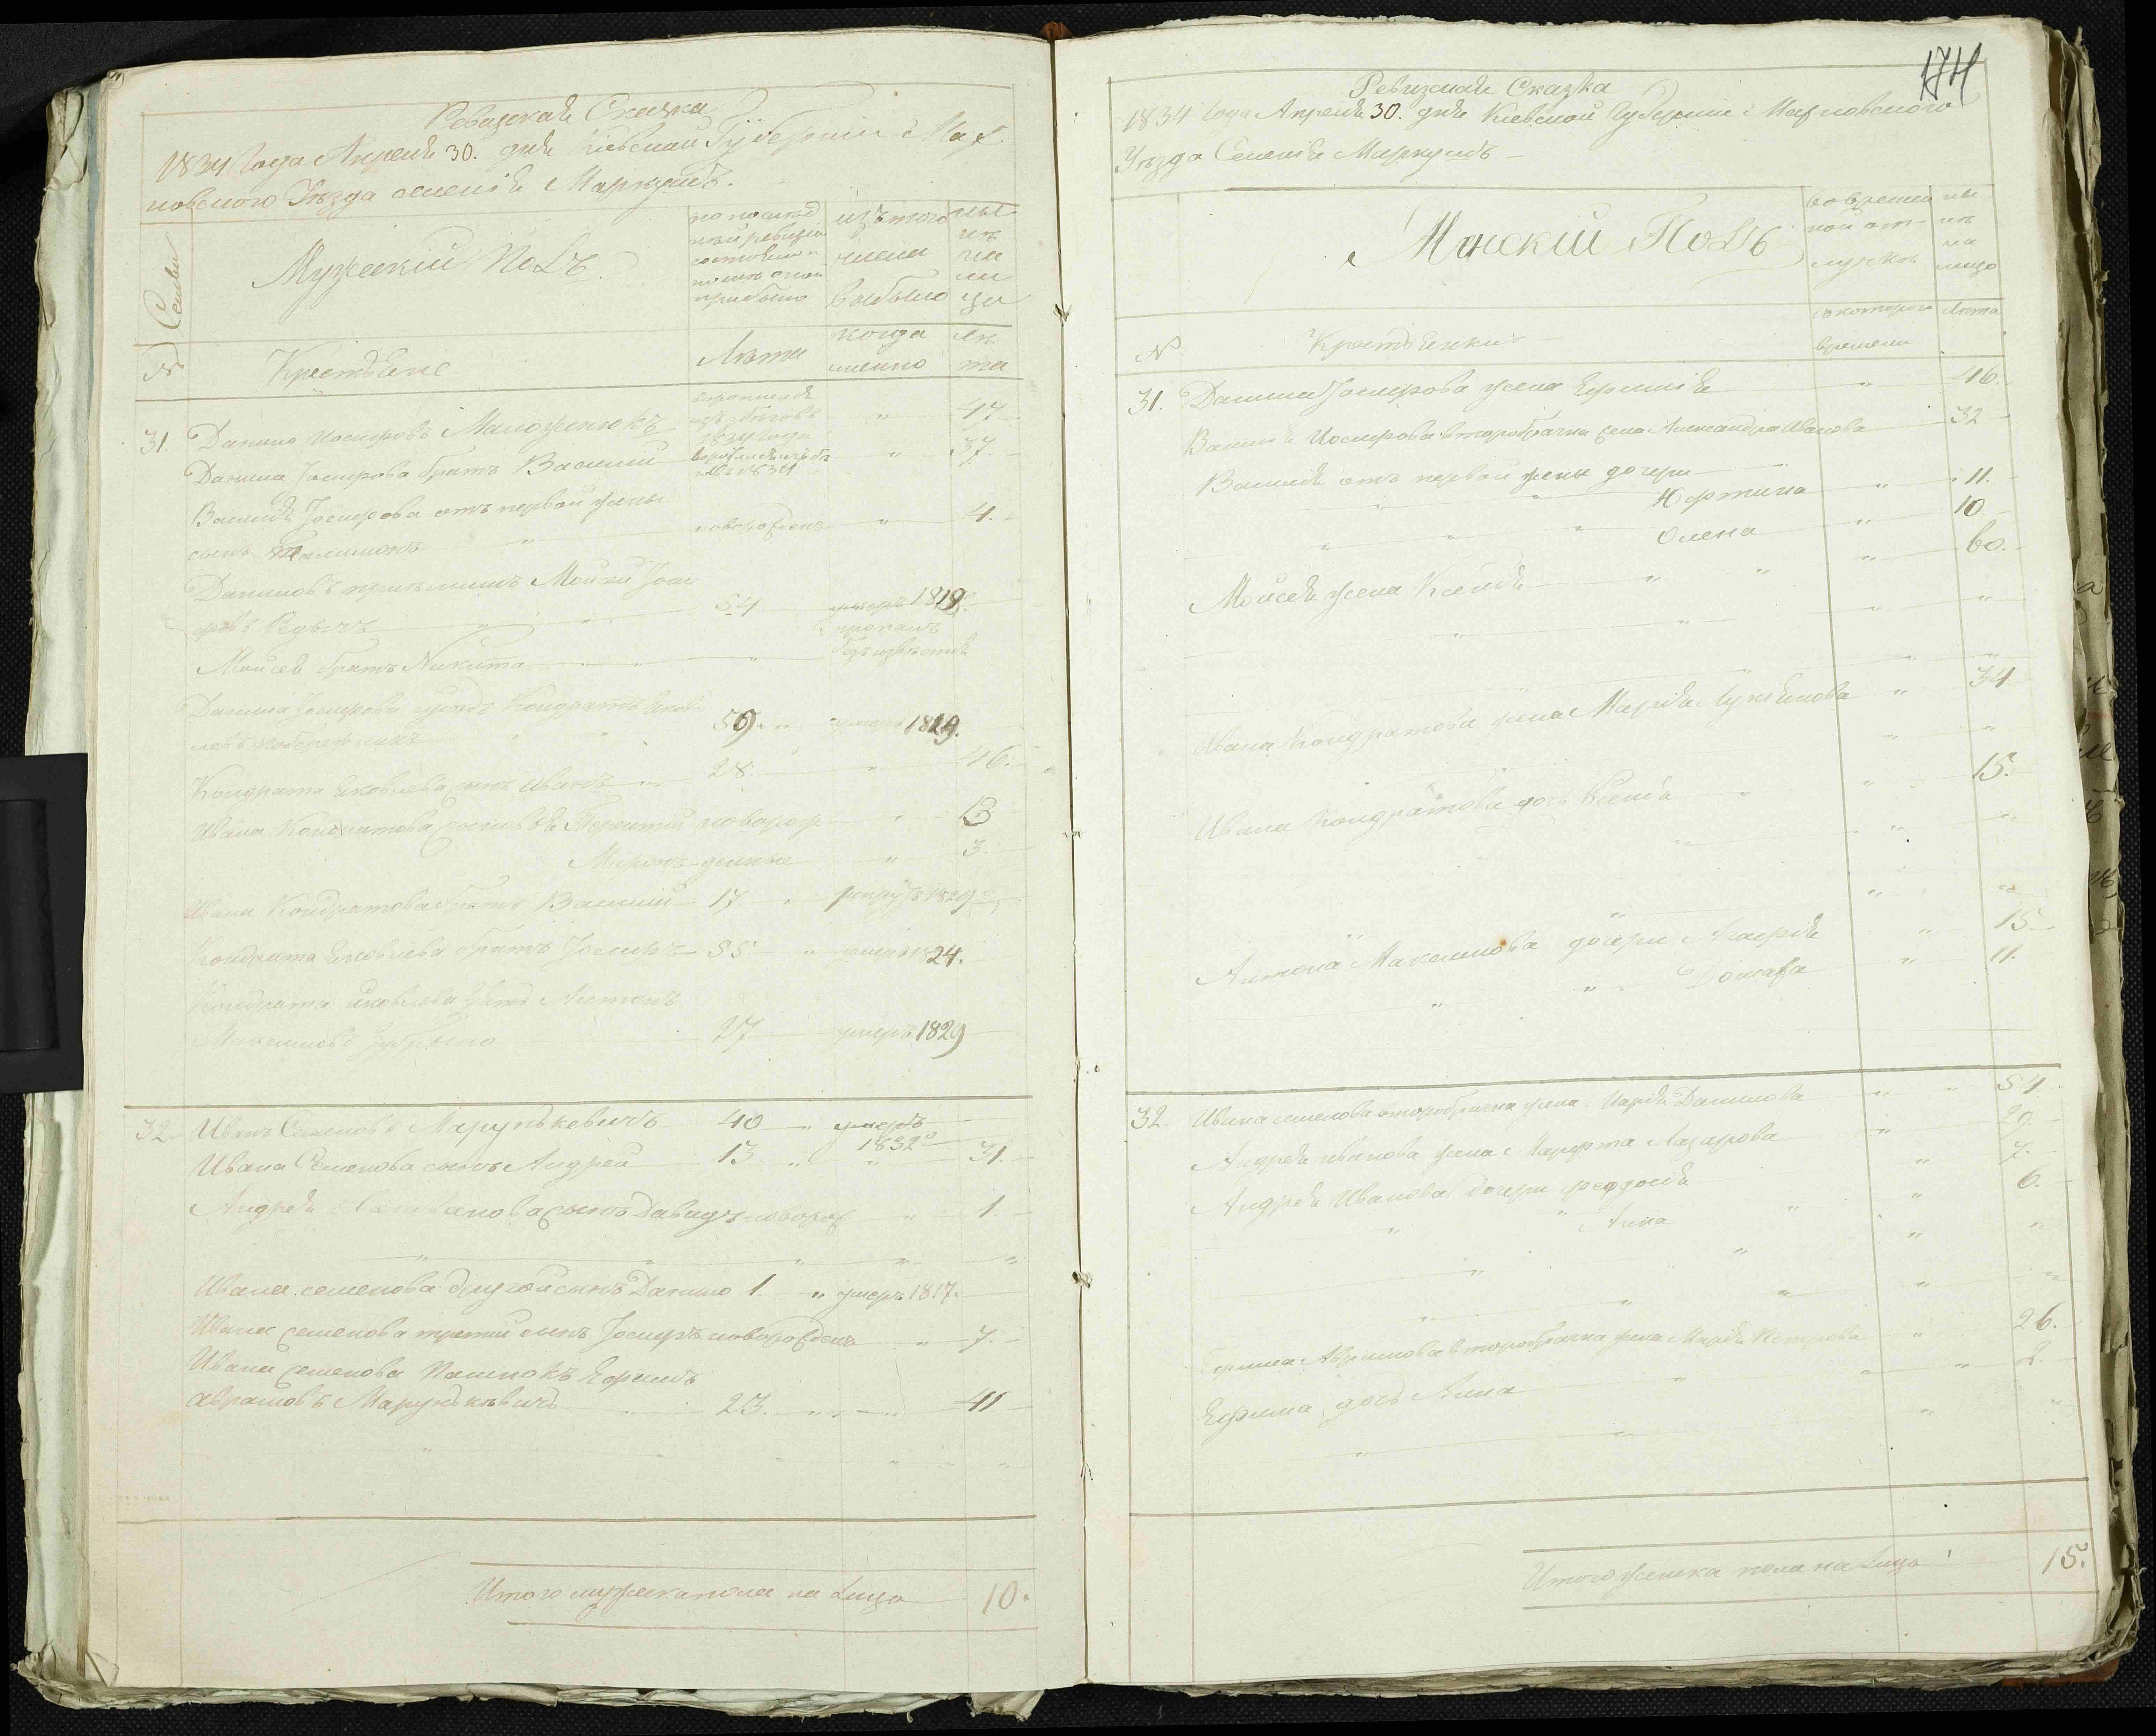 Ревизская Сказка
1834 Года Апреля 30. дня Киевской Губернии Мах
новского Уезда селенія Маркушъ.
Семьи
Мужескій Полъ
по послед
ней ревизіи
состояло и
после оной
прибыло
изъ того
числа
выбыло
ны
не
на
ли
цо
№
Крестьяне
Лета
когда
именно
Ле
та
31. Данило Иосифовъ воротился изъ бѣговъ 1834 года " 47
Данила Іосифова братъ Василій воротился изъ бѣ 1834 " 37.
Василія Іосифова отъ первой жены
сынъ Филимонъ " новорожденъ " 4.
Даниловъ пріемышъ Мойсей Іоси
фовъ " " 54 умеръ 1818.
Мойсея братъ Никита " " пропалъ безъ извѣстія
Данила Іосифова Кондратъ Яков
левъ " " 59. " умеръ 1819.
Кондрата Яковлева сынъ Иванъ 28. " 46.
Ивана Кондратова сыновья Терентій новорож " 13
Миронъ денные " 3.
Ивана Кондратова братъ Василій 17 " рекрутъ 1829
Кондрата Яковлева братъ Іосифъ 55 " умеръ 1824.
Кондрата Яковлева зять Антонъ
Максимовъ 27 умеръ 1829
32 Иванъ Семеновъ Марунькевичъ 40 " умеръ 1832
Ивана Семенова сынъ Андрей 13 " " 31.
Андрея Иванова сынъ Давидъ новорож " 1.
" " " " "
Ивана семенова другой сынъ Данило 1. " умеръ 1817.
Ивана семенова третій сынъ Іосифъ новорожденъ " 7.
Ивана семенова Ефимъ
Аврамовъ Марунькевичъ " 23. " " 41.
" " " " "
Итого мужеска пола на Лицо 10.
174
Ревизская Сказка
1834 Года Апреля 30. дня Киевской Губерніи Махновского
Уезда Селенія Маркушъ
Женскій Полъ
во времен
ной от-
лучке
ны
не
на
лицо
№
Крестьянки
съ которого
времени
Лета
31. Данила Іосифова жена Ефимія " 46.
Василія Иосифова второбрачна жена Александра Иванова 32
Василія отъ первой жены дочери
" " Юфтина " 11.
" " " Олена " 10
Мойсея жена Ксенія " " " 60.
" " " "
" " " "
Ивана Кондратова жена Марія Лукьянова " 34
" " "
Ивана Кондратова дочь Ксенія " " 15.
" " " "
" " "
Антона Максимова дочери Агафія " 15
" " Домаха " 11.
32. Ивана семенова второбрачна жена Марія Данилова " 54
Андрея иванова жена Марфта Лазарова " 29.
Андрея Иванова дочери Феодосія " 7.
" " Анна " " 6.
" " " "
" " " " "
Ефима Аврамова второбрачна жена Марія Петрова " 26.
Ефима дочь Анна " " " 2.
" " " "
Итого женска пола на Лицо 15.